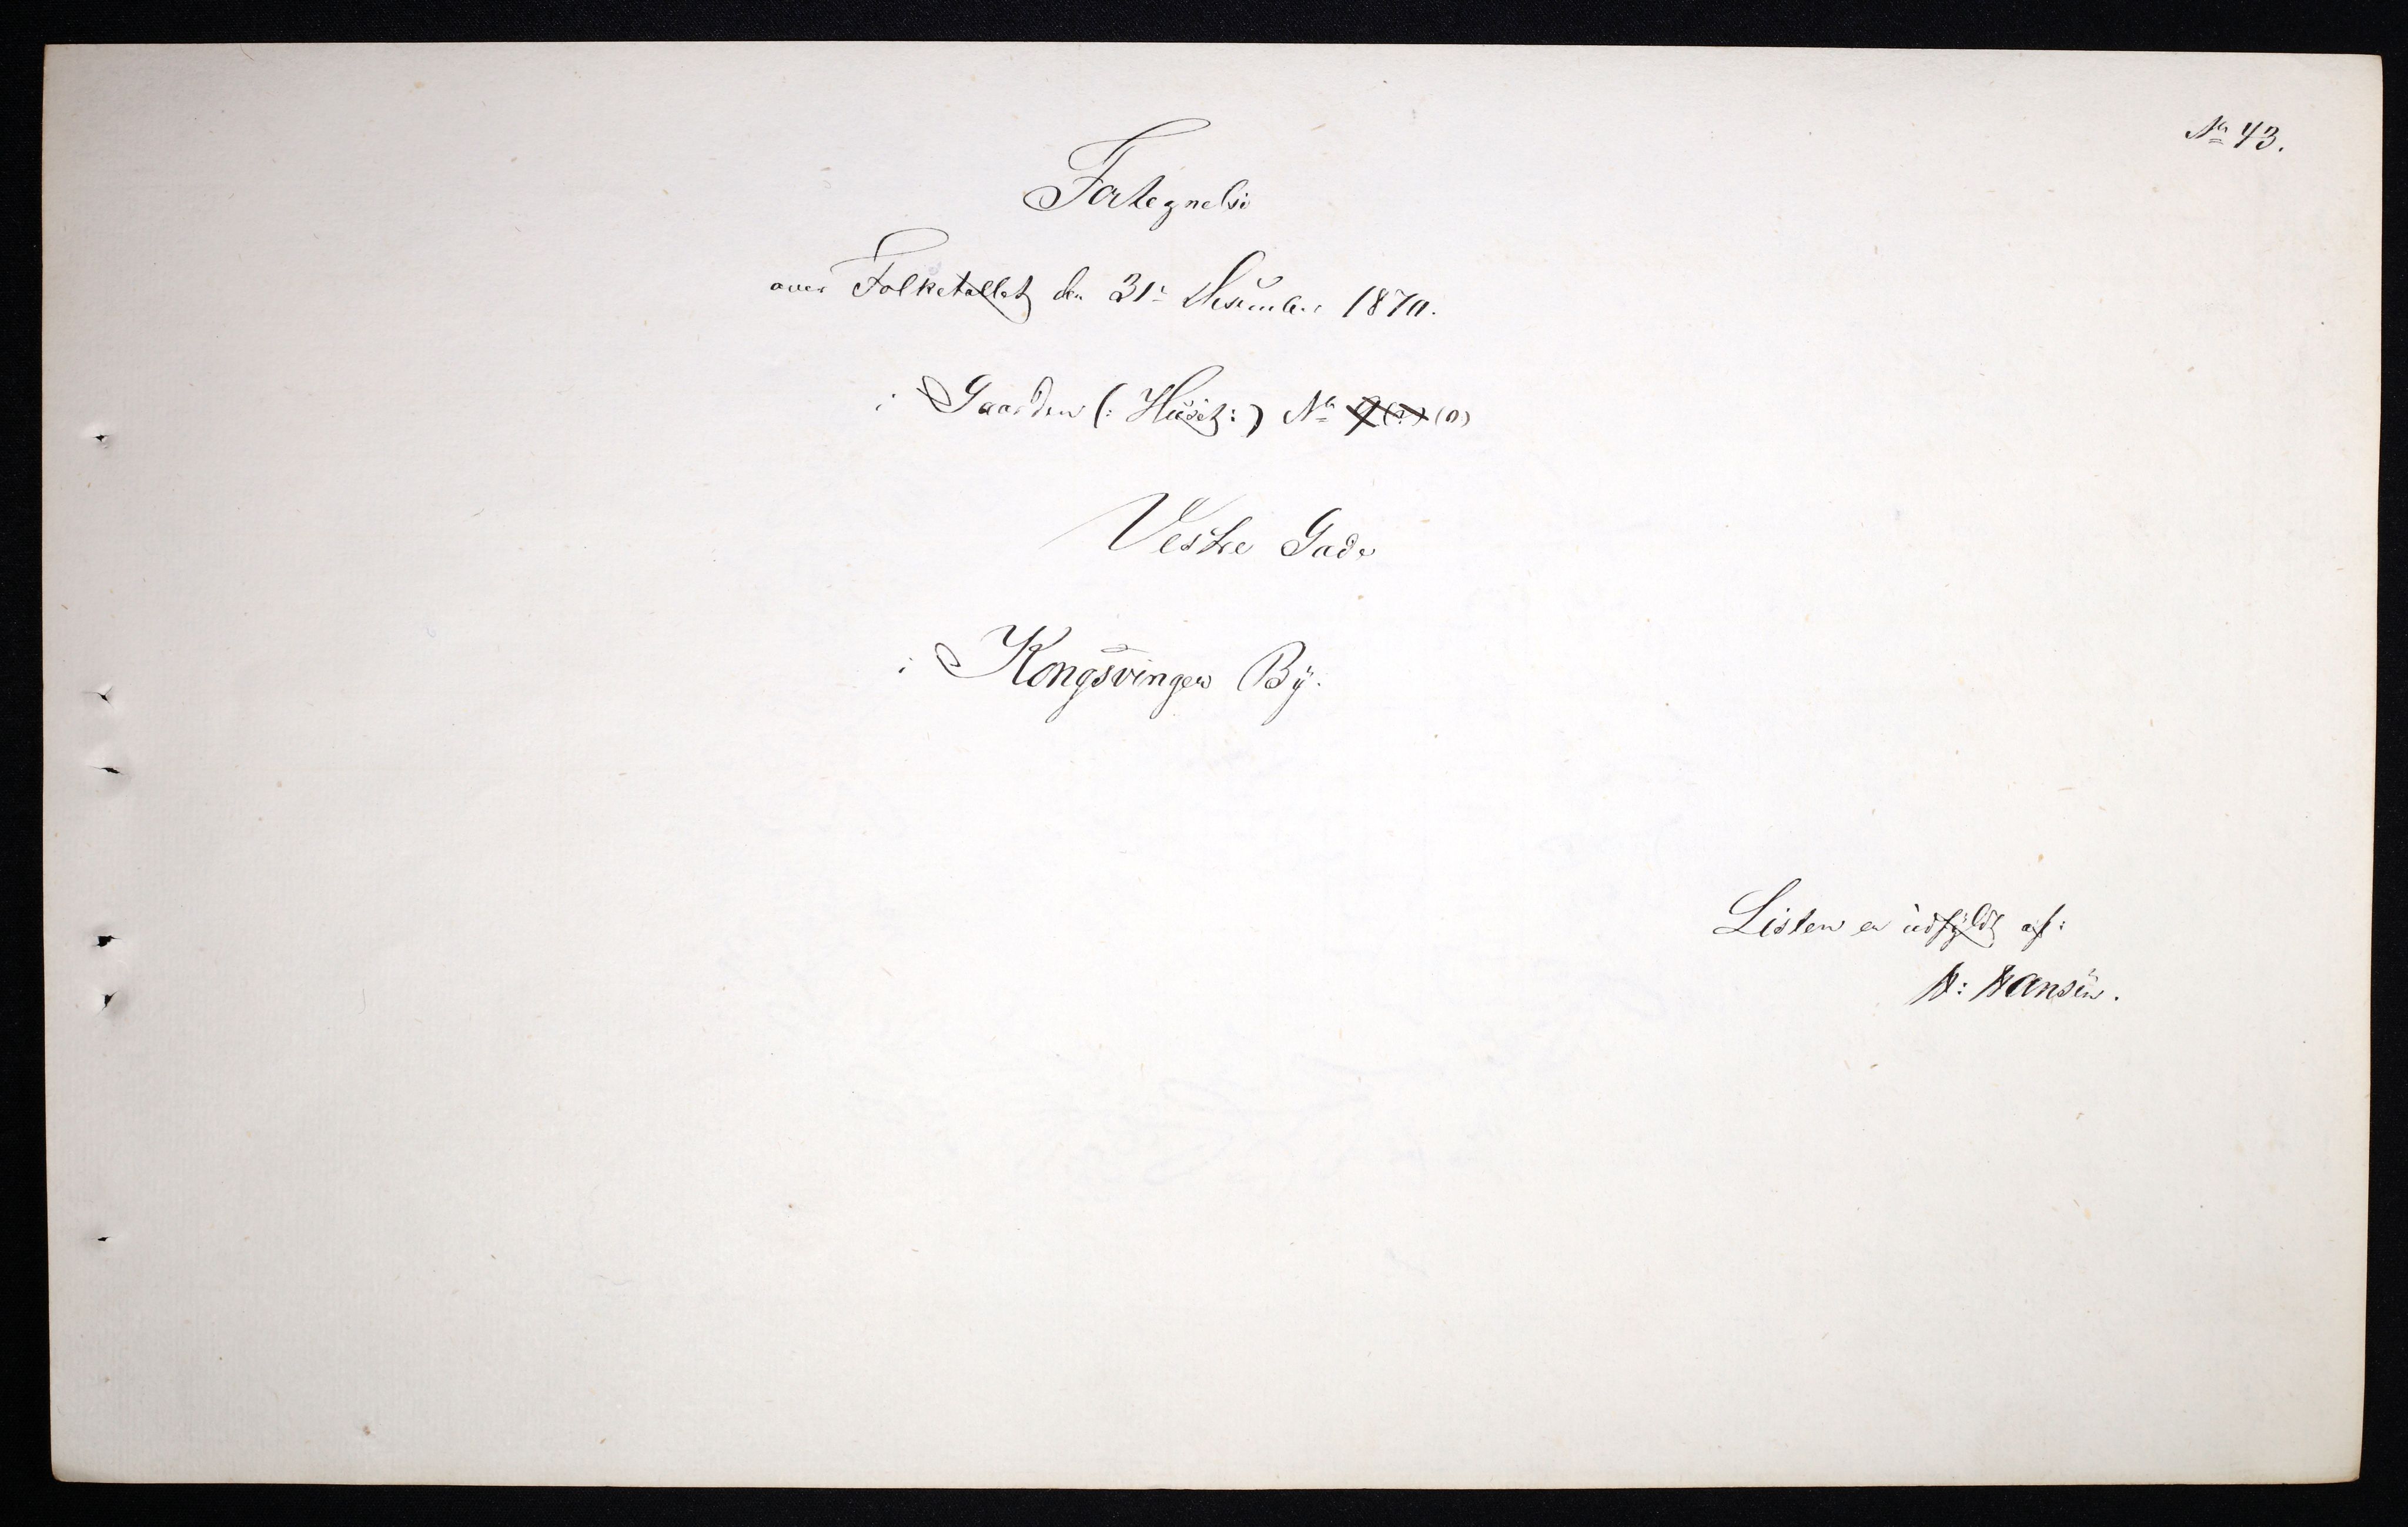 No 43.
Fortegnelse
over Folketallet den 31te Desember 1870.
i Gaarden (: Huset :) No (0)
Vestre Gade
i Kongsvinger By.
Listen er udfyldt af:
H: Hansen.